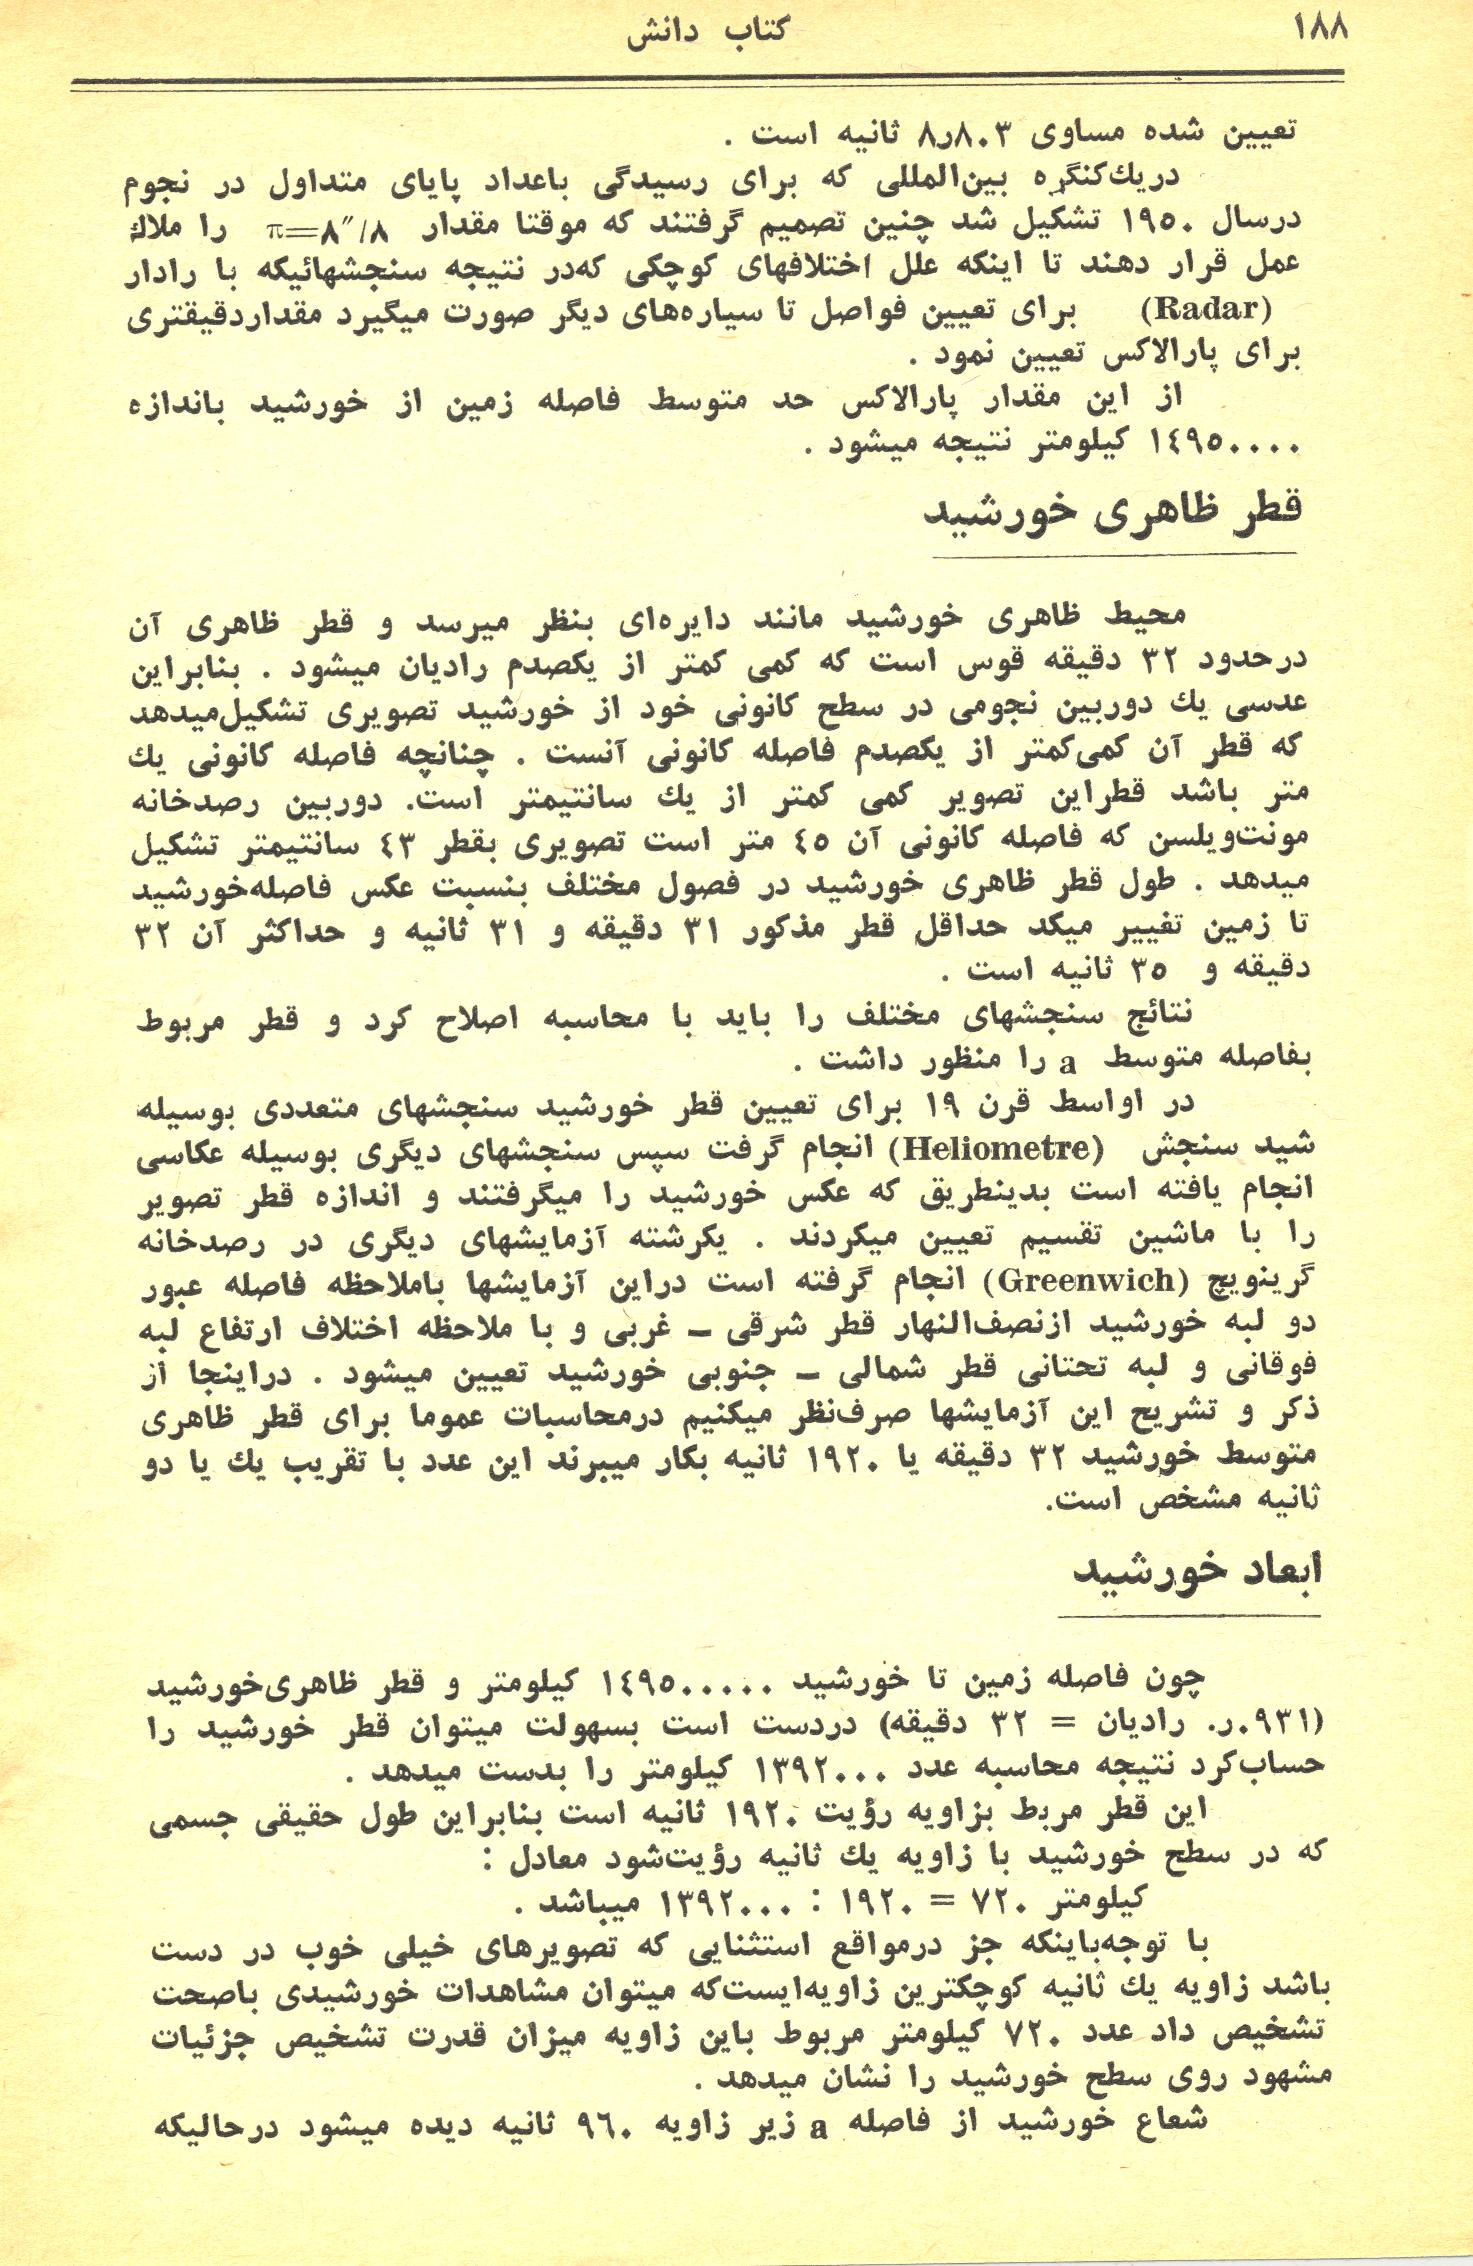 ۱۸۸
کتاب دانش
تعیین شده مساوی ۸ر۸۰۳ ثانیه است .
دریك‌کنگره بین‌المللی که برای رسیدگی باعداد پایای متداول در نجوم
درسال ۱۹۵۰ تشکیل شد چنین تصمیم گرفتند که موقتا مقدار π=۸″/۸ را ملاك
عمل قرار دهند تا اینکه علل اختلافهای کوچکی که‌در نتیجه سنجشهائیکه با رادار
(Radar) برای تعیین فواصل تا سیاره‌های دیگر صورت میگیرد مقداردقیقتری
برای پارالاکس تعیین نمود .
از این مقدار پارالاکس حد متوسط فاصله زمین از خورشید باندازه
۱٤۹۵۰۰۰۰ کیلومتر نتیجه میشود .
قطر ظاهری خورشید
محیط ظاهری خورشید مانند دایره‌ای بنظر میرسد و قطر ظاهری آن
درحدود ۳۲ دقیقه قوس است که کمی کمتر از یکصدم رادیان میشود . بنابراین
عدسی یك دوربین نجومی در سطح کانونی خود از خورشید تصویری تشکیل‌میدهد
که قطر آن کمی‌کمتر از یکصدم فاصله کانونی آنست . چنانچه فاصله کانونی یك
متر باشد قطراین تصویر کمی کمتر از یك سانتیمتر است. دوربین رصدخانه
مونت‌ویلسن که فاصله کانونی آن ٤۵ متر است تصویری بقطر ٤۳ سانتیمتر تشکیل
میدهد . طول قطر ظاهری خورشید در فصول مختلف بنسبت عکس فاصله‌خورشید
تا زمین تغییر میکد حداقل قطر مذکور ۳۱ دقیقه و ۳۱ ثانیه و حداکثر آن ۳۲
دقیقه و ۳۵ ثانیه است .
نتائج سنجشهای مختلف را باید با محاسبه اصلاح کرد و قطر مربوط
بفاصله متوسط a را منظور داشت .
در اواسط قرن ۱۹ برای تعیین قطر خورشید سنجشهای متعددی بوسیله
شید سنجش (Heliometre) انجام گرفت سپس سنجشهای دیگری بوسیله عکاسی
انجام یافته است بدینطریق که عکس خورشید را میگرفتند و اندازه قطر تصویر
را با ماشین تقسیم تعیین میکردند . یکرشته آزمایشهای دیگری در رصدخانه
گرینویچ (Greenwich) انجام گرفته است دراین آزمایشها باملاحظه فاصله عبور
دو لبه خورشید ازنصف‌النهار قطر شرقی – غربی و با ملاحظه اختلاف ارتفاع لبه
فوقانی و لبه تحتانی قطر شمالی – جنوبی خورشید تعیین میشود . دراینجا از
ذکر و تشریح این آزمایشها صرف‌نظر میکنیم درمحاسبات عموما برای قطر ظاهری
متوسط خورشید ۳۲ دقیقه یا ۱۹۲۰ ثانیه بکار میبرند این عدد با تقریب یك یا دو
ثانیه مشخص است.
ابعاد خورشید
چون فاصله زمین تا خورشید ۱٤۹۵۰۰۰۰۰ کیلومتر و قطر ظاهری‌خورشید
(۰ر۰۹۳۱ رادیان = ۳۲ دقیقه) دردست است بسهولت میتوان قطر خورشید را
حساب‌کرد نتیجه محاسبه عدد ۱۳۹۲۰۰۰ کیلومتر را بدست میدهد .
این قطر مربط بزاویه رؤیت ۱۹۲۰ ثانیه است بنابراین طول حقیقی جسمی
که در سطح خورشید با زاویه یك ثانیه رؤیت‌شود معادل :
کیلومتر ۷۲۰ = ۱۹۲۰ : ۱۳۹۲۰۰۰ میباشد .
با توجه‌باینکه جز درمواقع استثنایی که تصویرهای خیلی خوب در دست
باشد زاویه یك ثانیه کوچکترین زاویه‌ایست‌که میتوان مشاهدات خورشیدی باصحت
تشخیص داد عدد ۷۲۰ کیلومتر مربوط باین زاویه میزان قدرت تشخیص جزئیات
مشهود روی سطح خورشید را نشان میدهد .
شعاع خورشید از فاصله a زیر زاویه ۹٦۰ ثانیه دیده میشود درحالیکه